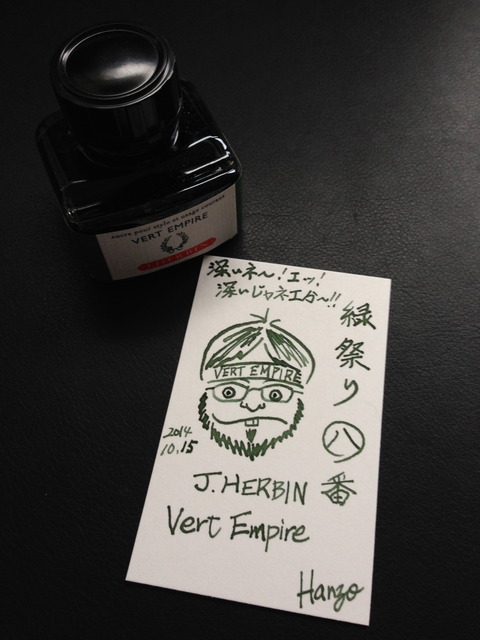 encre pour stylo et usage courant
VERT EMPIRE
J. HERBIN
深いネ〜!エッ!
深いじゃネエか〜!!
緑祭り八番
VERT EMPIRE
2014
10.15
J. HERBIN
Vert Empire
Hanzo